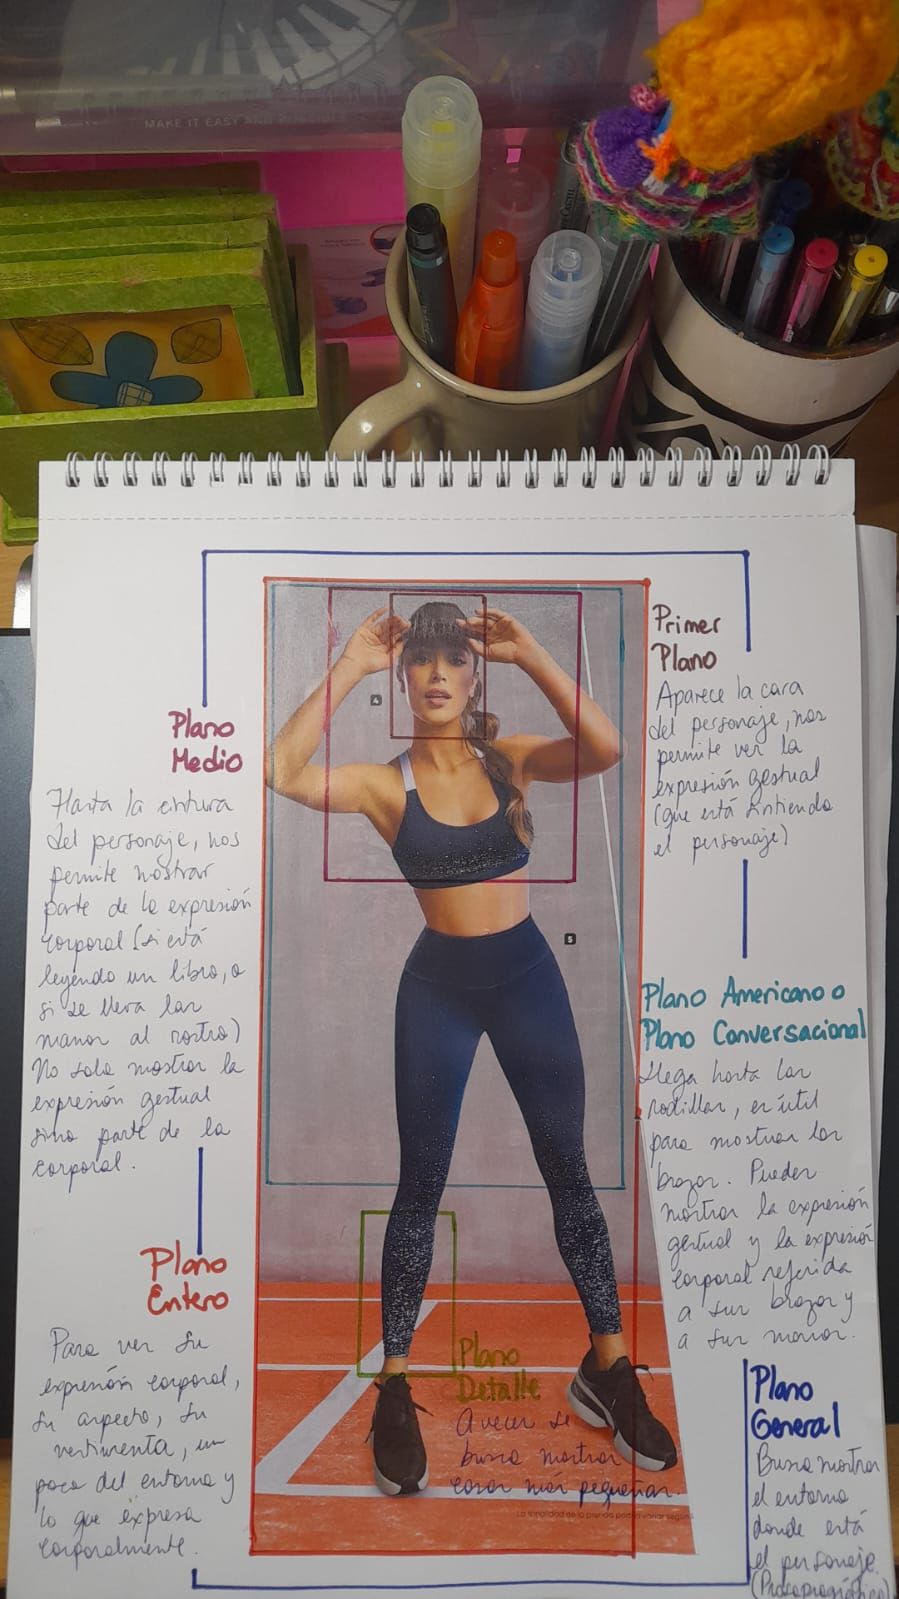 MAKE IT EASY AND POSSIBLE
Plano
Medio
Hasta la cintura
del personaje, nos
permite mostrar
parte de la expresión
corporal (si está
leyendo un libro, o
si se lleva las
manos al rostro)
No solo mostrar la
expresión gestual
sino parte de la
corporal.
Plano
Entero
Para ver su
expresión corporal,
su aspecto, su
vestimenta, un
poco del entorno y
lo que expresa
corporalmente.
4
5
Plano
Detalle
A veces se
busca mostrar
cosas más pequeñas.
La tonalidad de la prenda podrá variar según
Primer
Plano
Aparece la cara
del personaje, nos
permite ver la
expresión gestual
(que está sintiendo
el personaje)
Plano Americano o
Plano Conversacional
Llega hasta las
rodillas, es útil
para mostrar los
brazos. Puedes
mostrar la expresión
gestual y la expresión
corporal referida
a sus brazos y
a sus manos.
Plano
General
Busca mostrar
el entorno
donde está
el personaje.